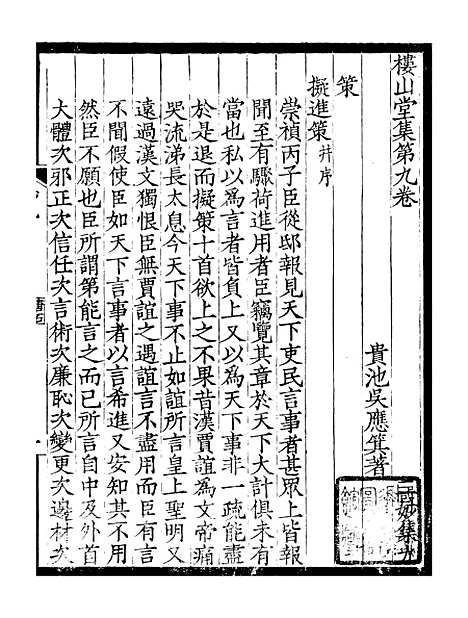 樓山堂集第九卷
貴池吳應箕著
策
擬進策并序
崇禎丙子臣從邸報見天下吏民言事者甚眾上皆報
聞至有驟荷進用者臣竊覽其章於天下大計俱未有
當也私以為言者皆負上又以為天下事非一疏能盡
於是退而擬策十首欲上之不果昔漢賈誼為文帝痛
哭流涕長太息今天下事不止如誼所言皇上聖明又
遠過漢文獨恨臣無賈誼之遇誼言不盡用而臣有言
不聞假使臣如天下言事者以言希進又安知其不用
然臣不願也臣所謂第能言之而已所言自中及外首
大體次邪正次信任次言術次廉恥次變更次邊材次